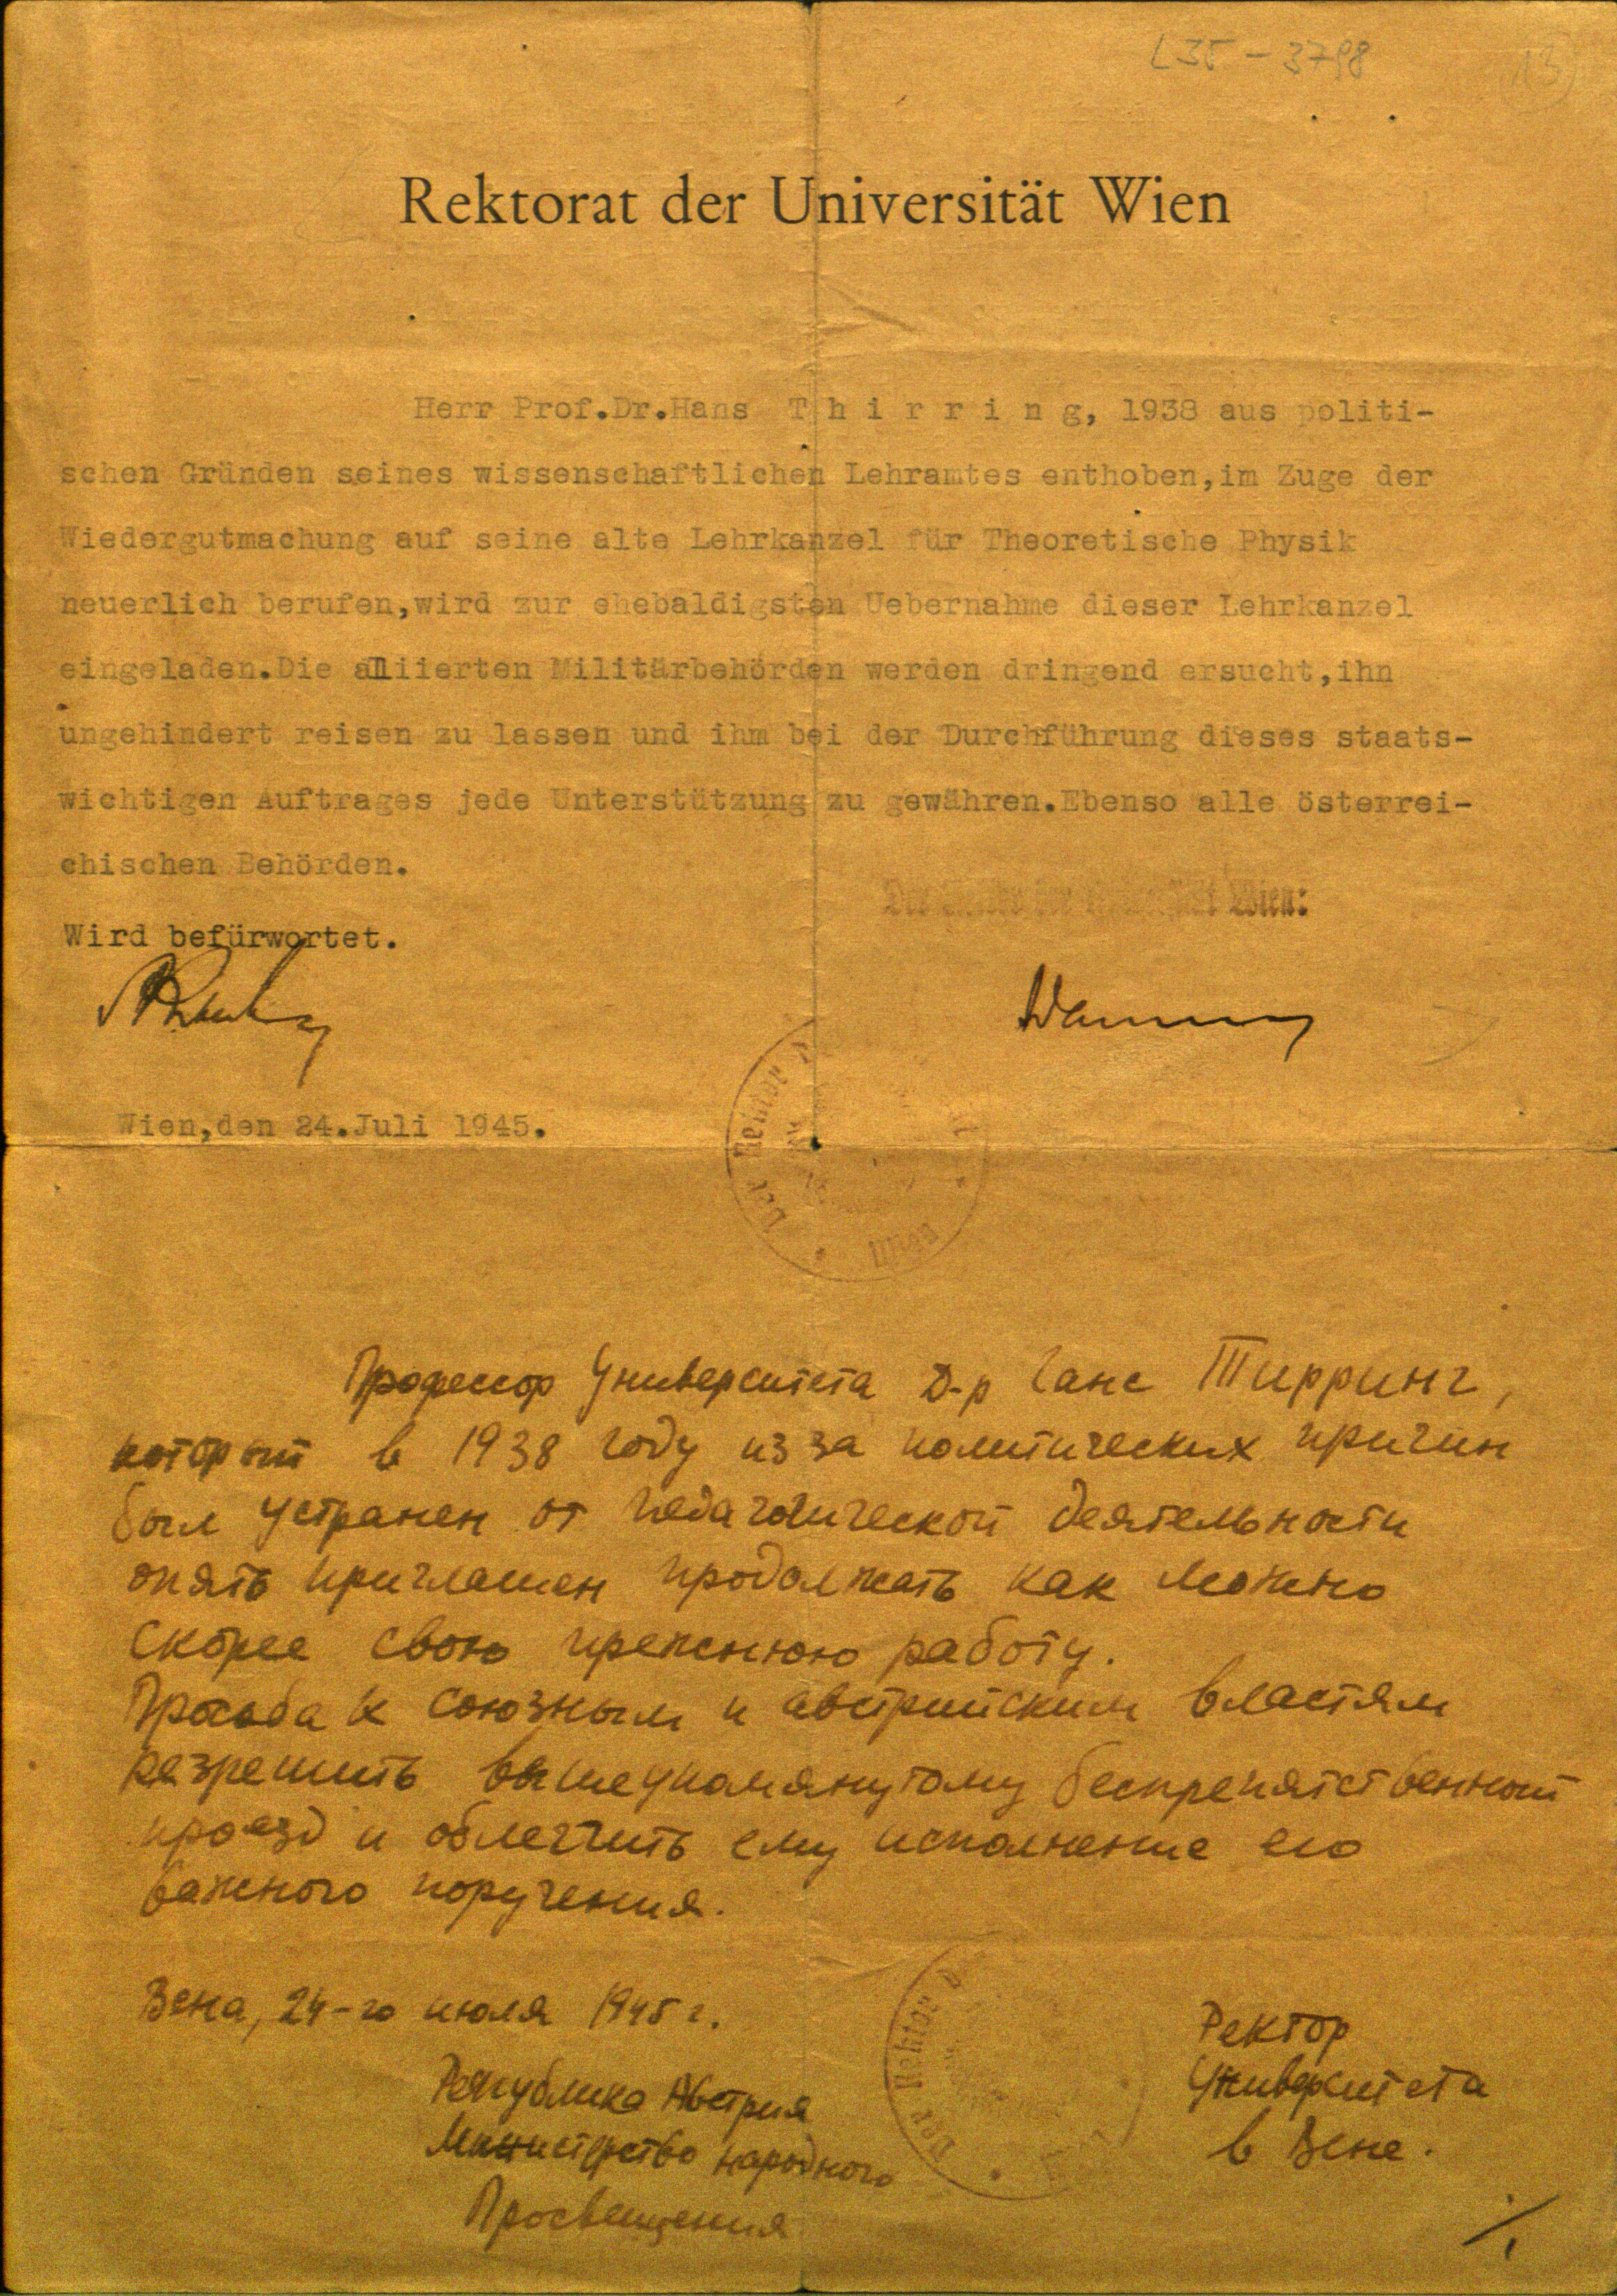 L35-3798
13
Rektorat der Universität Wien
Herr Prof.Dr.Hans T h i r r i n g, 1938 aus politi-
schen Gründen seines wissenschaftlichen Lehramtes enthoben,im Zuge der
Wiedergutmachung auf seine alte Lehrkanzel für Theoretische Physik
neuerlich berufen,wird zur ehebaldigsten Uebernahme dieser Lehrkanzel
eingeladen.Die alliierten Militärbehörden werden dringend ersucht,ihn
ungehindert reisen zu lassen und ihm bei der Durchführung dieses staats-
wichtigen Auftrages jede Unterstützung zu gewähren.Ebenso alle österrei-
chischen Behörden.
Wien:
Wird befürwortet.
Wien,den 24.Juli 1945.
Der Rektor
Wien
Профессор Университета Д-р Ганс Тирринг,
который в 1938 году из за политических причин
был устранен от педагогической деятельности
опять приглашен продолжать как можно
скорее свою прежнюю работу.
Просьба к союзным и австрийским властям
разрешить вышеупомянутому беспрепятственный
проезд и облегчить ему исполнение его
важного поручения.
Вена, 24-го июля 1945 г.
Ректор
Университета
в Вене.
Республика Австрия
Министерство народного
Просвещения
Der Rektor